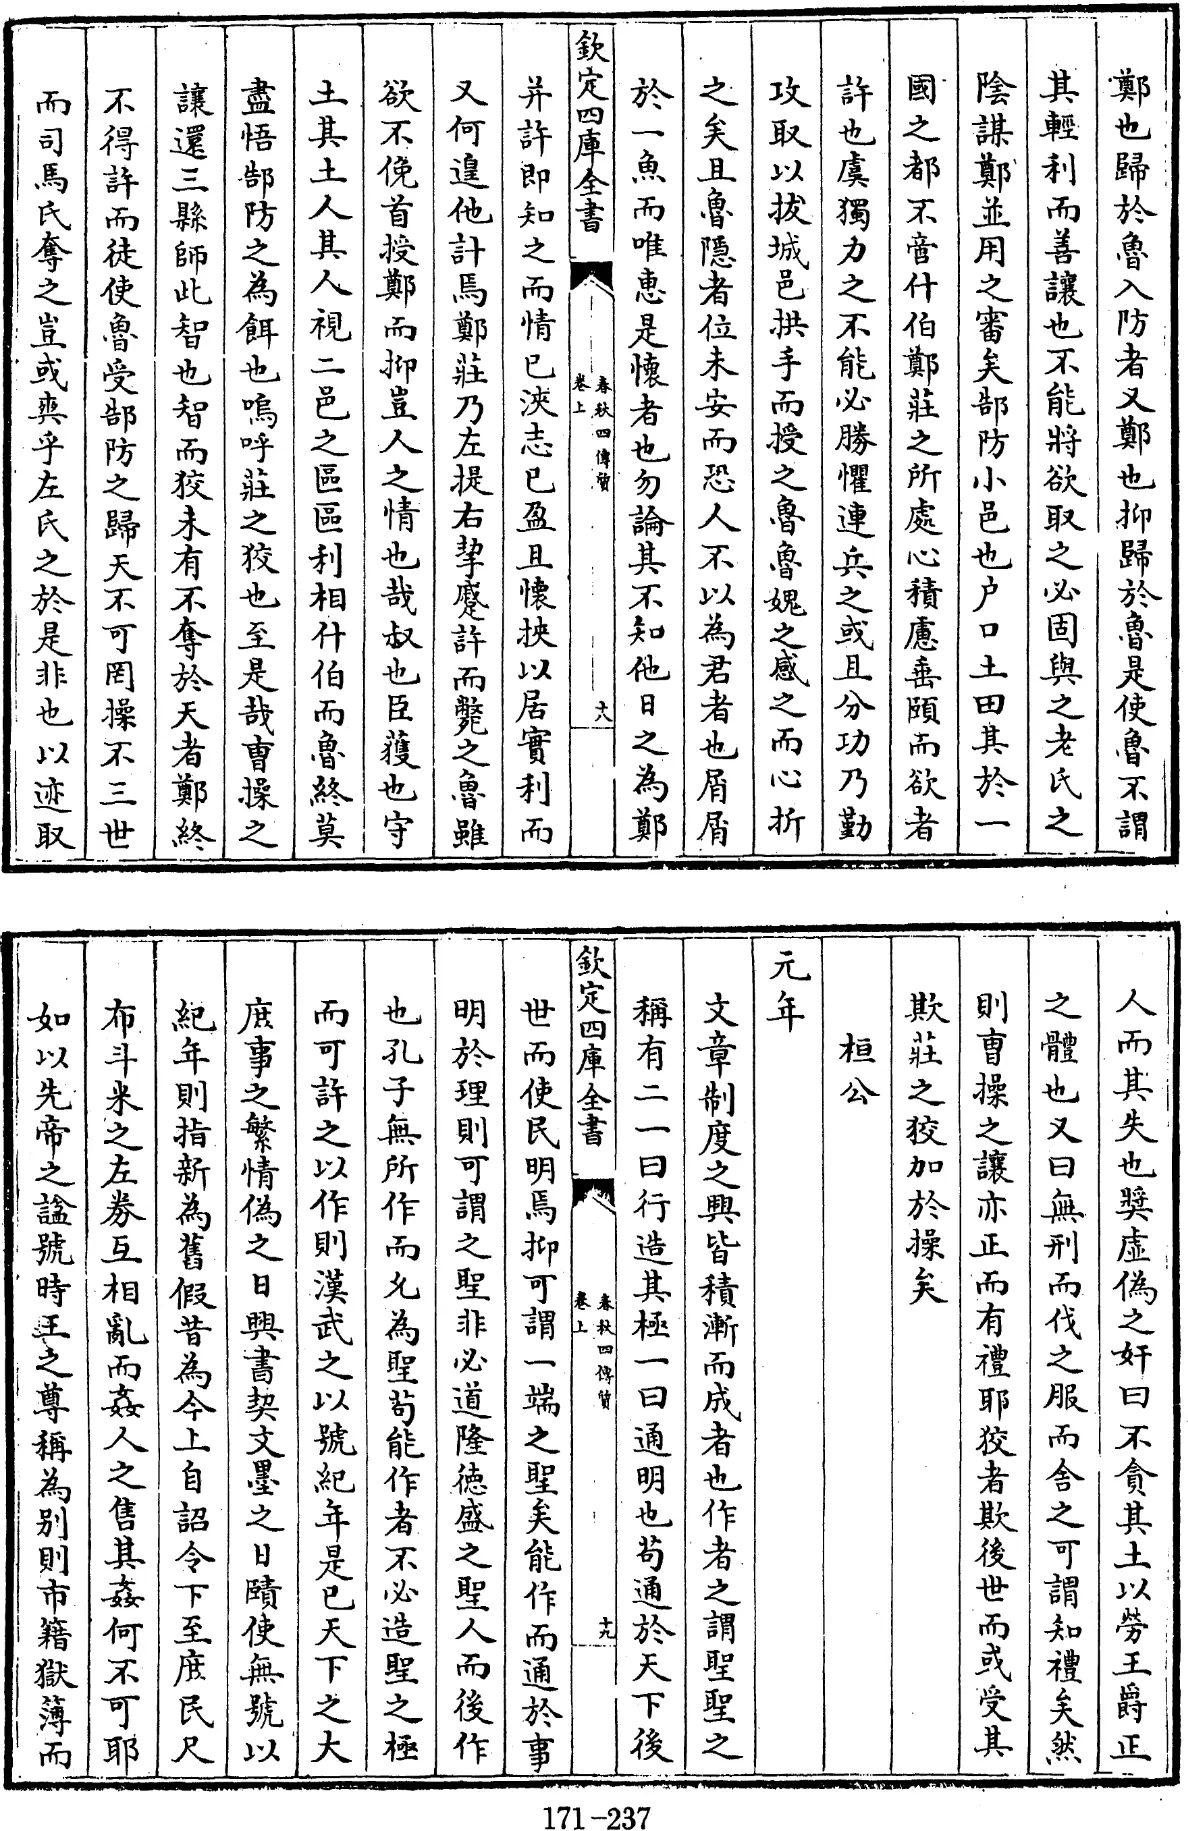 鄭也歸於魯入防者又鄭也抑歸於魯是使魯不謂
其輕利而善讓也不能將欲取之必固與之老氏之
陰謀鄭並用之審矣郜防小邑也户口土田其於一
國之都不啻什伯鄭莊之所處心積慮垂頤而欲者
許也虞獨力之不能必勝懼連兵之或且分功乃勤
攻取以拔城邑拱手而授之魯魯媿之感之而心折
之矣且魯隱者位未安而恐人不以為君者也屑屑
於一魚而唯惠是懷者也勿論其不知他日之為鄭
欽定四庫全書
春秋四傳質
卷上
十八
并許即知之而情已浹志已盈且懷挾以居實利而
又何遑他計焉鄭莊乃左提右挈蹙許而斃之魯雖
欲不俛首授鄭而抑豈人之情也哉叔也臣蔿也守
土其土人其人視二邑之區區利相什伯而魯終莫
盡悟郜防之為餌也嗚呼莊之狡也至是哉曹操之
讓還三縣師此智也智而狡未有不奪於天者鄭終
不得許而徒使魯受郜防之歸天不可罔操不三世
而司馬氏奪之豈或爽乎左氏之於是非也以迹取
人而其失也獎虛偽之奸曰不貪其土以勞王爵正
之體也又曰無刑而伐之服而舍之可謂知禮矣然
則曹操之讓亦正而有禮耶狡者欺後世而或受其
欺莊之狡加於操矣
桓公
元年
文章制度之興皆積漸而成者也作者之謂聖聖之
稱有二一曰行造其極一曰通明也苟通於天下後
欽定四庫全書
春秋四傳質
卷上
十九
世而使民明焉抑可謂一端之聖矣能作而通於事
明於理則可謂之聖非必道隆德盛之聖人而後作
也孔子無所作而允為聖苟能作者不必造聖之極
而可許之以作則漢武之以號紀年是已天下之大
庶事之繁情偽之日興書契文墨之日賾使無號以
紀年則指新為舊假昔為今上自詔令下至庶民尺
布斗米之左券互相亂而姦人之售其姦何不可耶
如以先帝之諡號時王之尊稱為别則市籍獄簿而
171-237